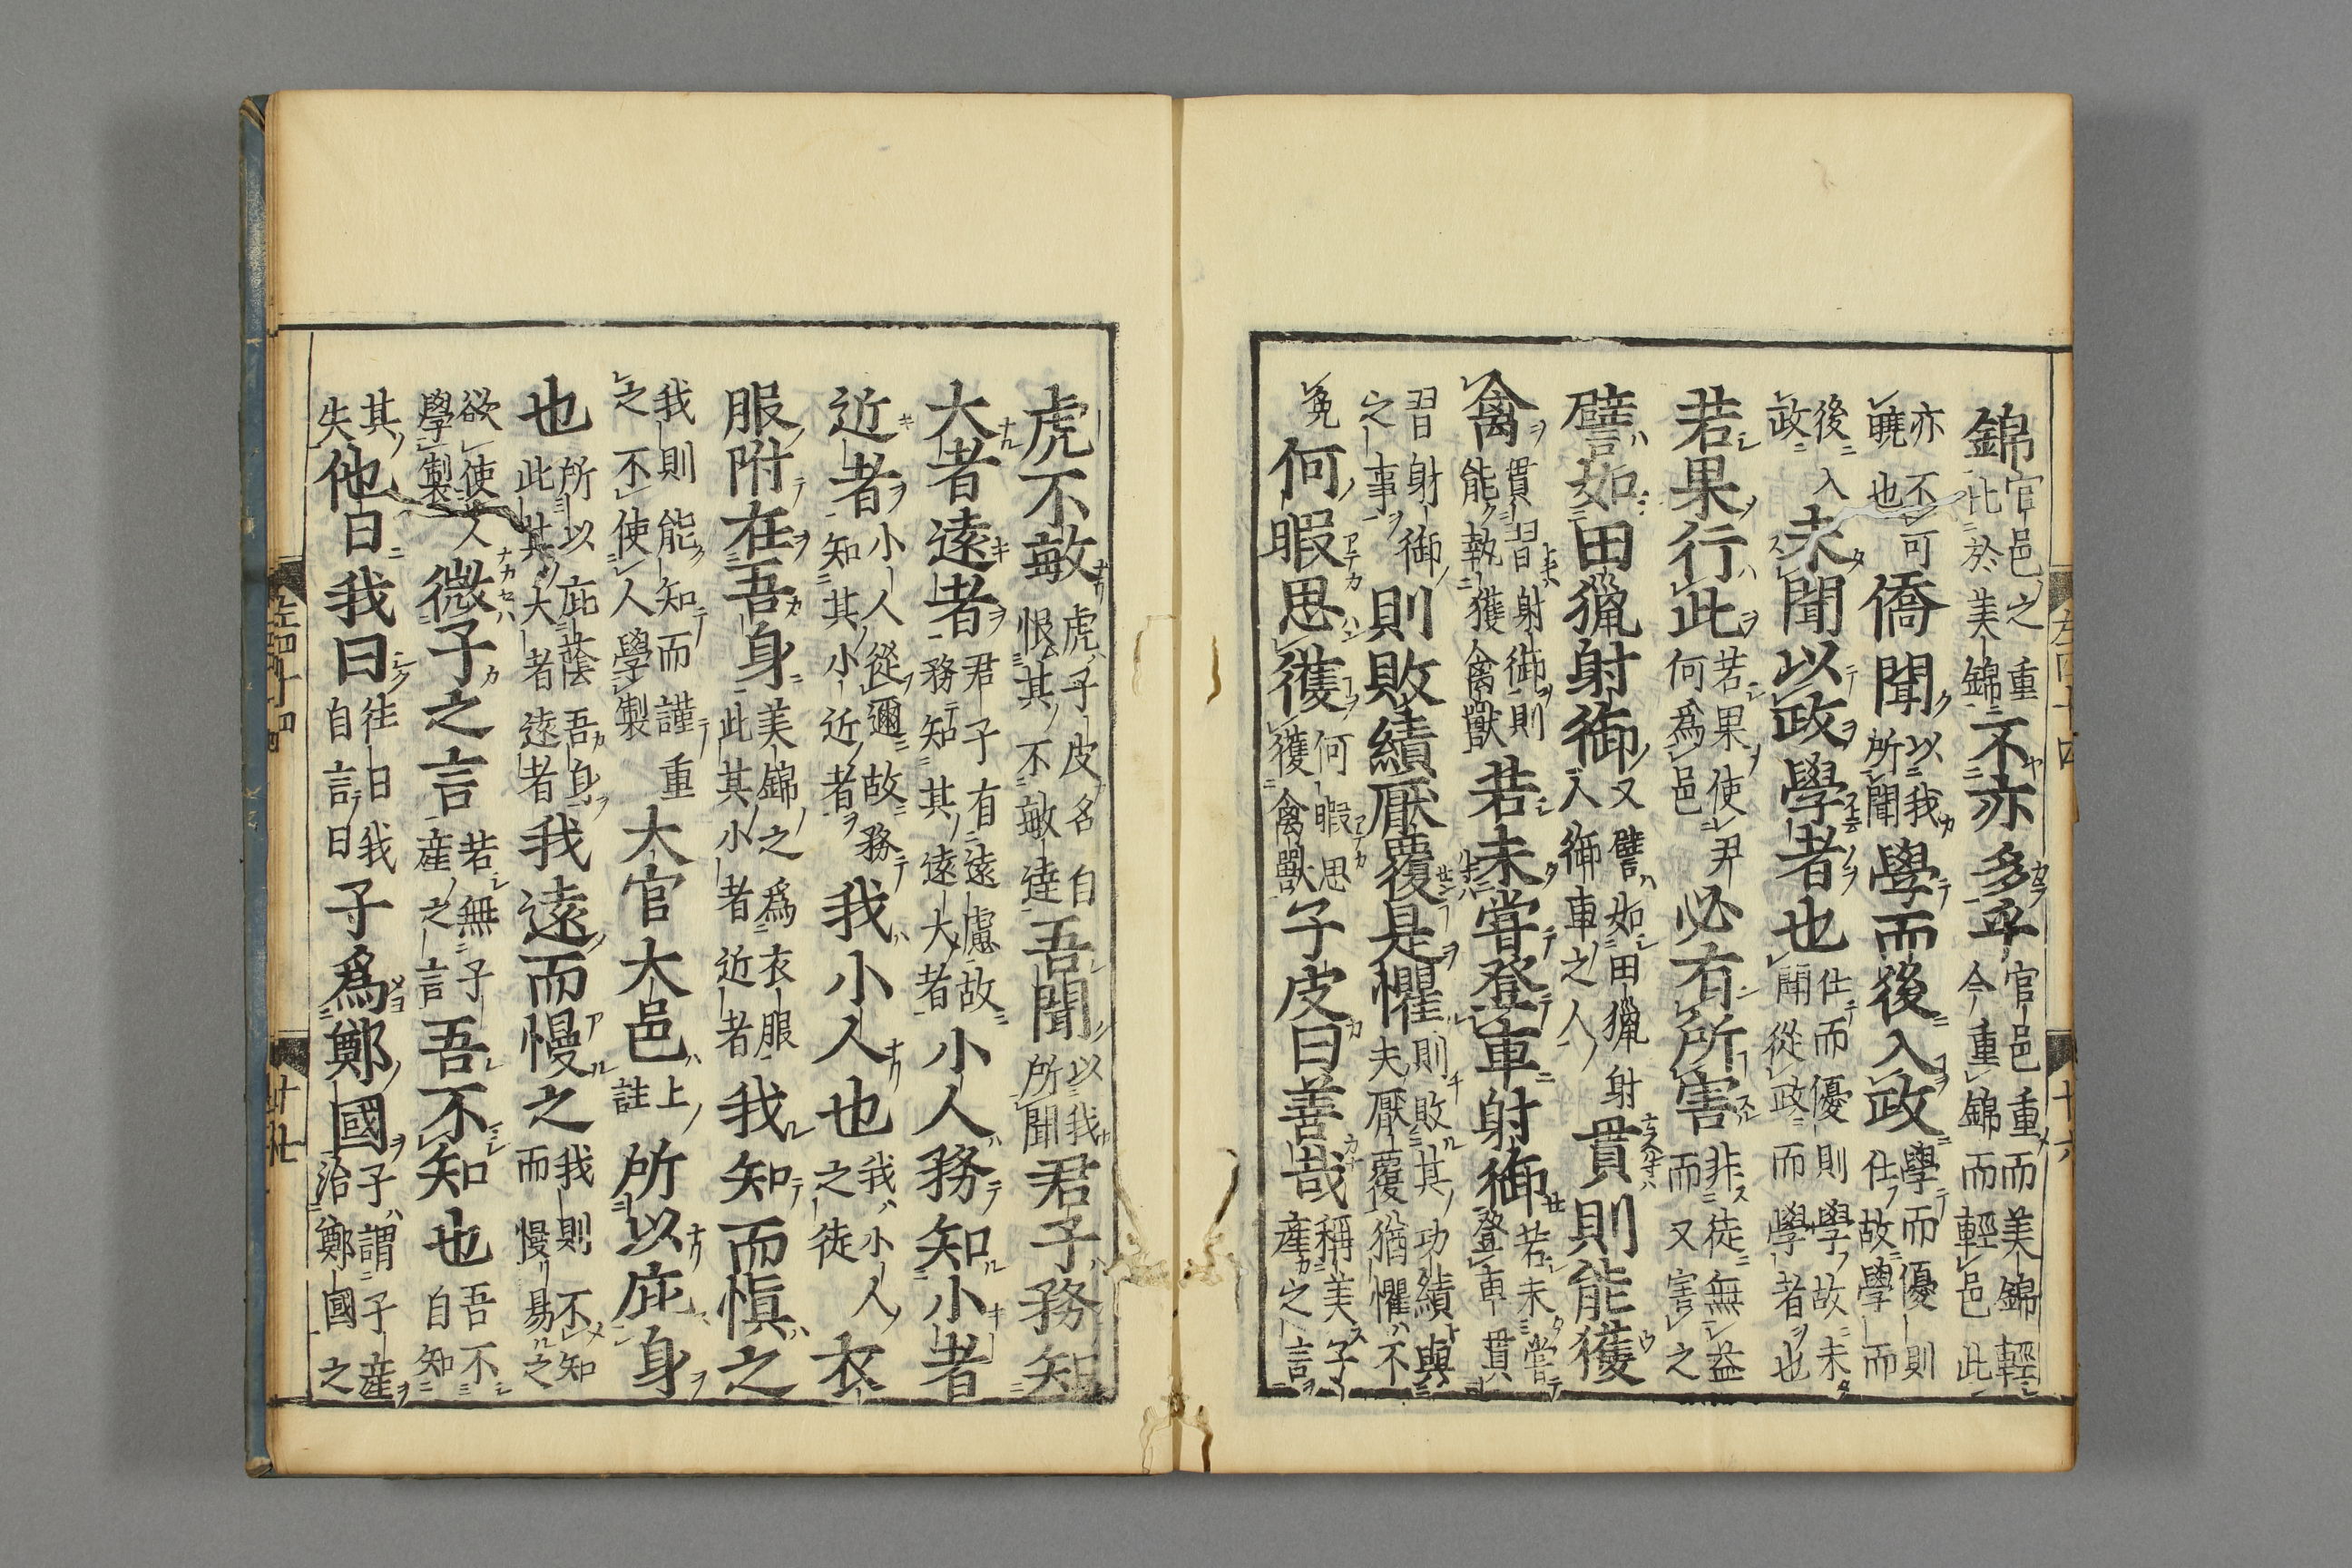 錦官邑之重比於美錦不亦多乎官邑重而美錦輕今重錦而輕邑此
亦不可曉也僑聞以我所聞學而後入政學而優則仕故學而
後入政未聞以政學者也仕而優則學故未聞從政而學者也
若果行此若果使尹何爲邑必有所害非徒無益而又害之
譬如田獵射御又譬如田獵射人御車之人貫則能獲
禽貫習射御則能執獲禽獸若未嘗登車射御若未嘗登車貫
習射御之事則敗績厭覆是懼則敗其功績與夫厭覆猶懼不
免何暇思獲何暇思獲禽獸子皮曰善哉稱美子產之言
虎不敏虎子皮名自恨其不敏達吾聞以我所聞君子務知
大者遠者君子有遠慮故務知其遠大者小人務知小者
近者小人從邇故務知其小近者我小人也我小人之徒衣
服附在吾身美錦之爲衣服此其小者近者我知而愼之
我則能知而謹重之不使人學製大官大邑上註所以庇身
也所以庇蔭吾身此其大者遠者我遠而慢之我則不知而慢易之
欲使人學製微子之言若無子產之言吾不知也吾不自知
其失他日我曰往日我自言曰子爲鄭國子謂子產治鄭國之